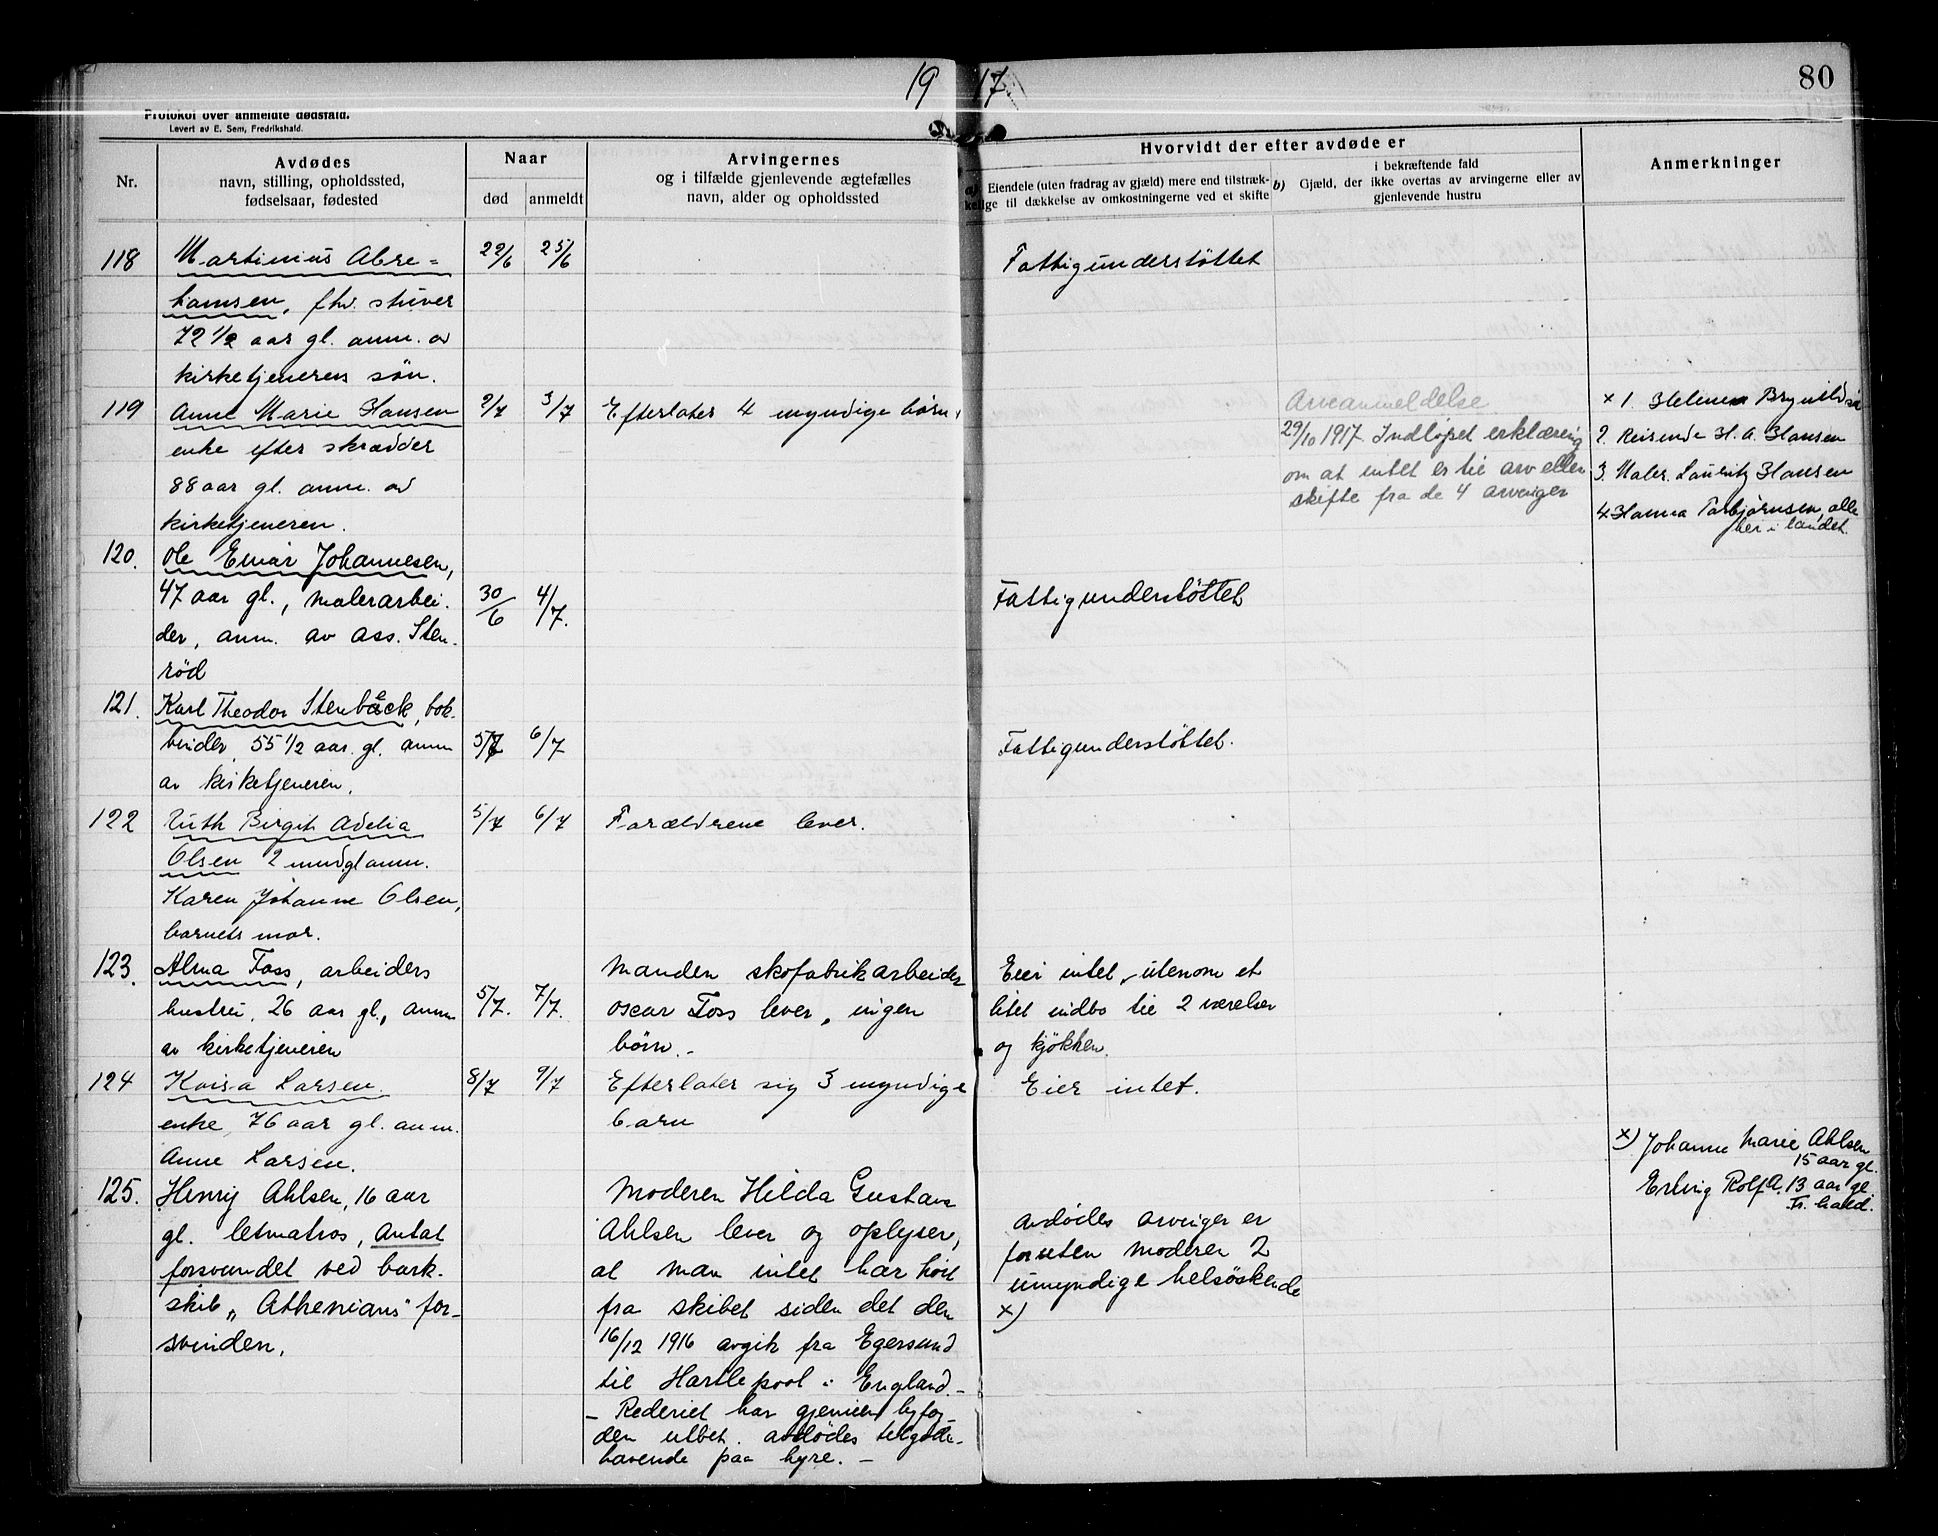 19 17
80
Protokol over anmeldte dødsfald.
Levert av E. Sem, Fredrikshald.
Nr.
Avdødes
navn, stilling, opholdssted,
fødselsaar, fødested
Naar
død
anmeldt
Arvingernes
og i tilfælde gjenlevende ægtefælles
navn, alder og opholdssted
Hvorvidt der efter avdøde er
a) Eiendele (uten fradrag av gjæld) mere end tilstræk-
kelige til dækkelse av omkostningerne ved et skifte
b) i bekræftende fald
Gjæld, der ikke overtas av arvingerne eller av
gjenlevende hustru
Anmerkninger
118 Martinius Abra= 22/6 25/6 Fattigunderstøttet
hamsen, fhv. stuver
72 1/2 aar gl. anm. av
kirketjenerens søn.
119 Anne Marie Hansen 2/7 3/7 Efterlater 4 myndige børn
enke efter skrædder
88 aar gl. anm. av
kirketjeneren.
Arveanmeldelse
29/10 1917. Indløpet erklæring
om at intet er til arv eller
skifte fra de 4 arvinger
x 1. Helene Brynildsen
2. Reisende H. A. Hansen
3. Maler. Lauritz Hansen
4 Hanna Torbjørnsen, alle
her i landet.
120. Ole Einar Johannesen,
47 aar gl., malerarbei- 30/6 4/7. Fattigunderstøttet
der, anm. av ass. Sten-
rød
121. Karl Theodor Stenbäck, bok-
binder, 55 1/2 aar. gl. anm 5/7 6/7 Fattigunderstøttet.
av kirketjeneren.
122 Ruth Birgit Adelia 5/7 6/7 Forældrene lever.
Olsen 2 mndgl anm.
Karen Johanne Olsen,
barnets mor.
123. Alma Foss, arbeiders Manden skofabrikarbeider Eier intet, utenom et
hustru, 26 aar gl., anm 5/7. 7/7. Oscar Foss lever, ingen litet indbo til 2 værelser
av kirketjeneren børn.- og kjøkken.
124 Kaisa Larsen. 8/7 9/7 Efterlater sig 3 myndige Eier intet.
enke, 76 aar gl. anm. barn
Anne Larsen.
125. Henry Ahlsen, 16 aar
gl. letmatros, Antat
forsvundet ved bark-
skib „Athenians" for-
svinden.
Moderen Hilda Gustava
Ahlsen lever og oplyser,
at man intet har hørt
fra skibet siden det den
16/12 1916 avgik fra Egersund
til Hartlepool i England.-
- Rederiet har gjennem byfog-
den utbet. avdødes tilgode-
havende paa hyre. -
Avdødes arvinger er
foruten moderen 2
umyndige helsøskende
x)
x) Johanne Marie Ahlsen
15 aar gl.
Erling Rolf A. 13 aar gl
Fr.hald.